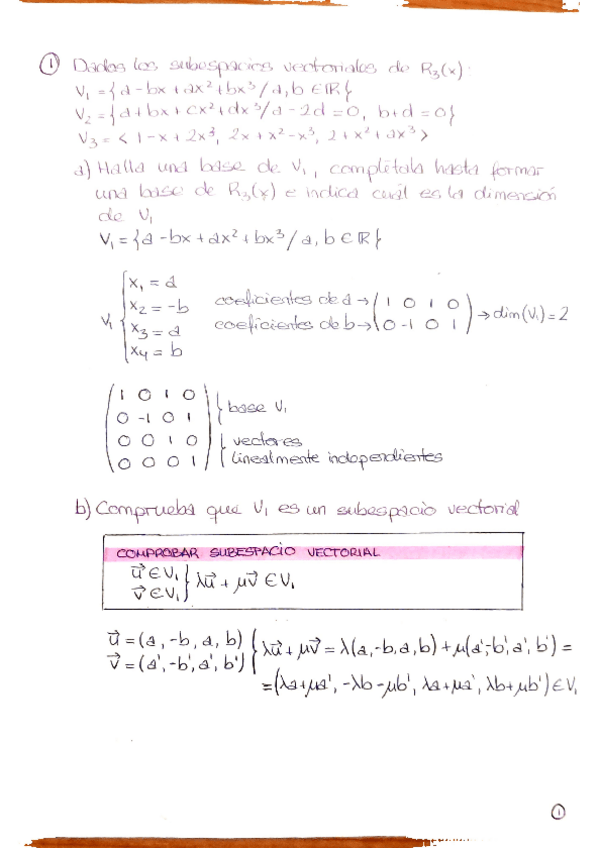 ① Dados los subespacios vectoriales de R₃(x):
V₁ = {a - bx + ax² + bx³ / a, b ∈ ℝ}
V₂ = {a + bx + cx² + dx³ / a - 2d = 0, b + d = 0}
V₃ = < 1 - x + 2x³, 2x + x² - x³, 2 + x² + ax³ >
a) Halla una base de V₁, complétala hasta formar
una base de R₃(x) e indica cuál es la dimensión
de V₁
V₁ = {a - bx + ax² + bx³ / a, b ∈ ℝ}
x₁ = a
x₂ = -b coeficientes de a → ( 1 0 1 0
V₁ { x₃ = a coeficientes de b → 0 -1 0 1 ) → dim(V₁) = 2
x₄ = b
1 0 1 0
0 -1 0 1 } base V₁
0 0 1 0 } vectores
0 0 0 1 linealmente independientes
b) Comprueba que V₁ es un subespacio vectorial
COMPROBAR SUBESPACIO VECTORIAL
u⃗ ∈ V₁
v⃗ ∈ V₁ } λu⃗ + μv⃗ ∈ V₁
u⃗ = (a, -b, a, b)
v⃗ = (a', -b', a', b') { λu⃗ + μv⃗ = λ(a, -b, a, b) + μ(a', -b', a', b') =
= (λa + μa', -λb - μb', λa + μa', λb + μb') ∈ V₁
①